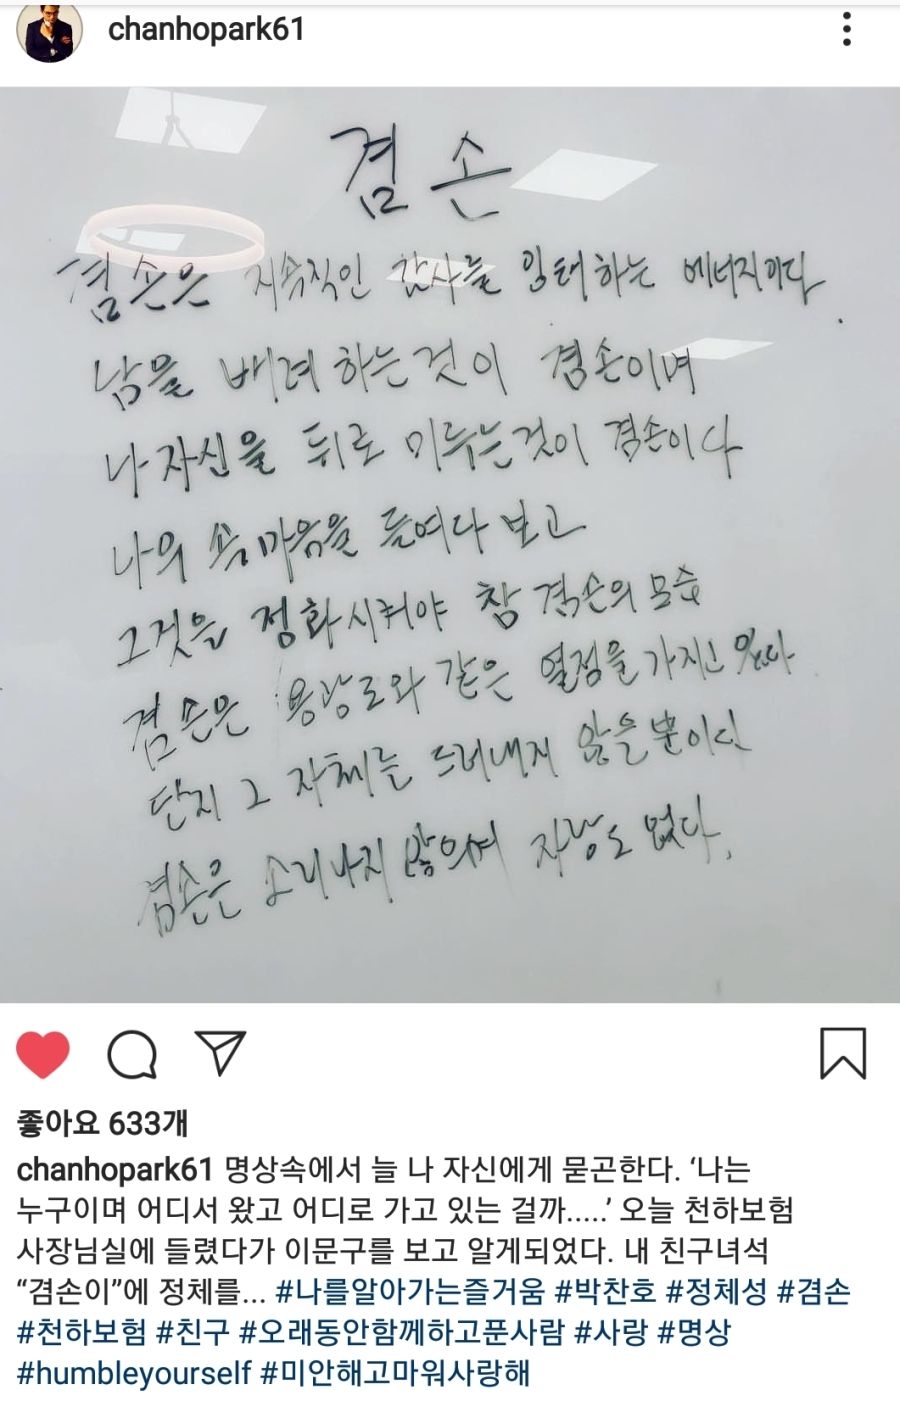 chanhopark61
겸손
겸손은 지속적인 감사를 잉태하는 에너지이다.
남을 배려하는것이 겸손이며
나 자신을 뒤로 미루는것이 겸손이다
나의 속마음을 들여다 보고
그것을 정화시켜야 참 겸손의 모습
겸손은 용광로와 같은 열정을 가지고 있다
단지 그 자체를 드러내지 않을뿐이다
겸손은 소리나지 않으며 자랑도 없다.
좋아요 633개
chanhopark61 명상속에서 늘 나 자신에게 묻곤한다. ‘나는
누구이며 어디서 왔고 어디로 가고 있는 걸까.....’ 오늘 천하보험
사장님실에 들렸다가 이문구를 보고 알게되었다. 내 친구녀석
“겸손이”에 정체를... #나를알아가는즐거움 #박찬호 #정체성 #겸손
#천하보험 #친구 #오래동안함께하고푼사람 #사랑 #명상
#humbleyourself #미안해고마워사랑해